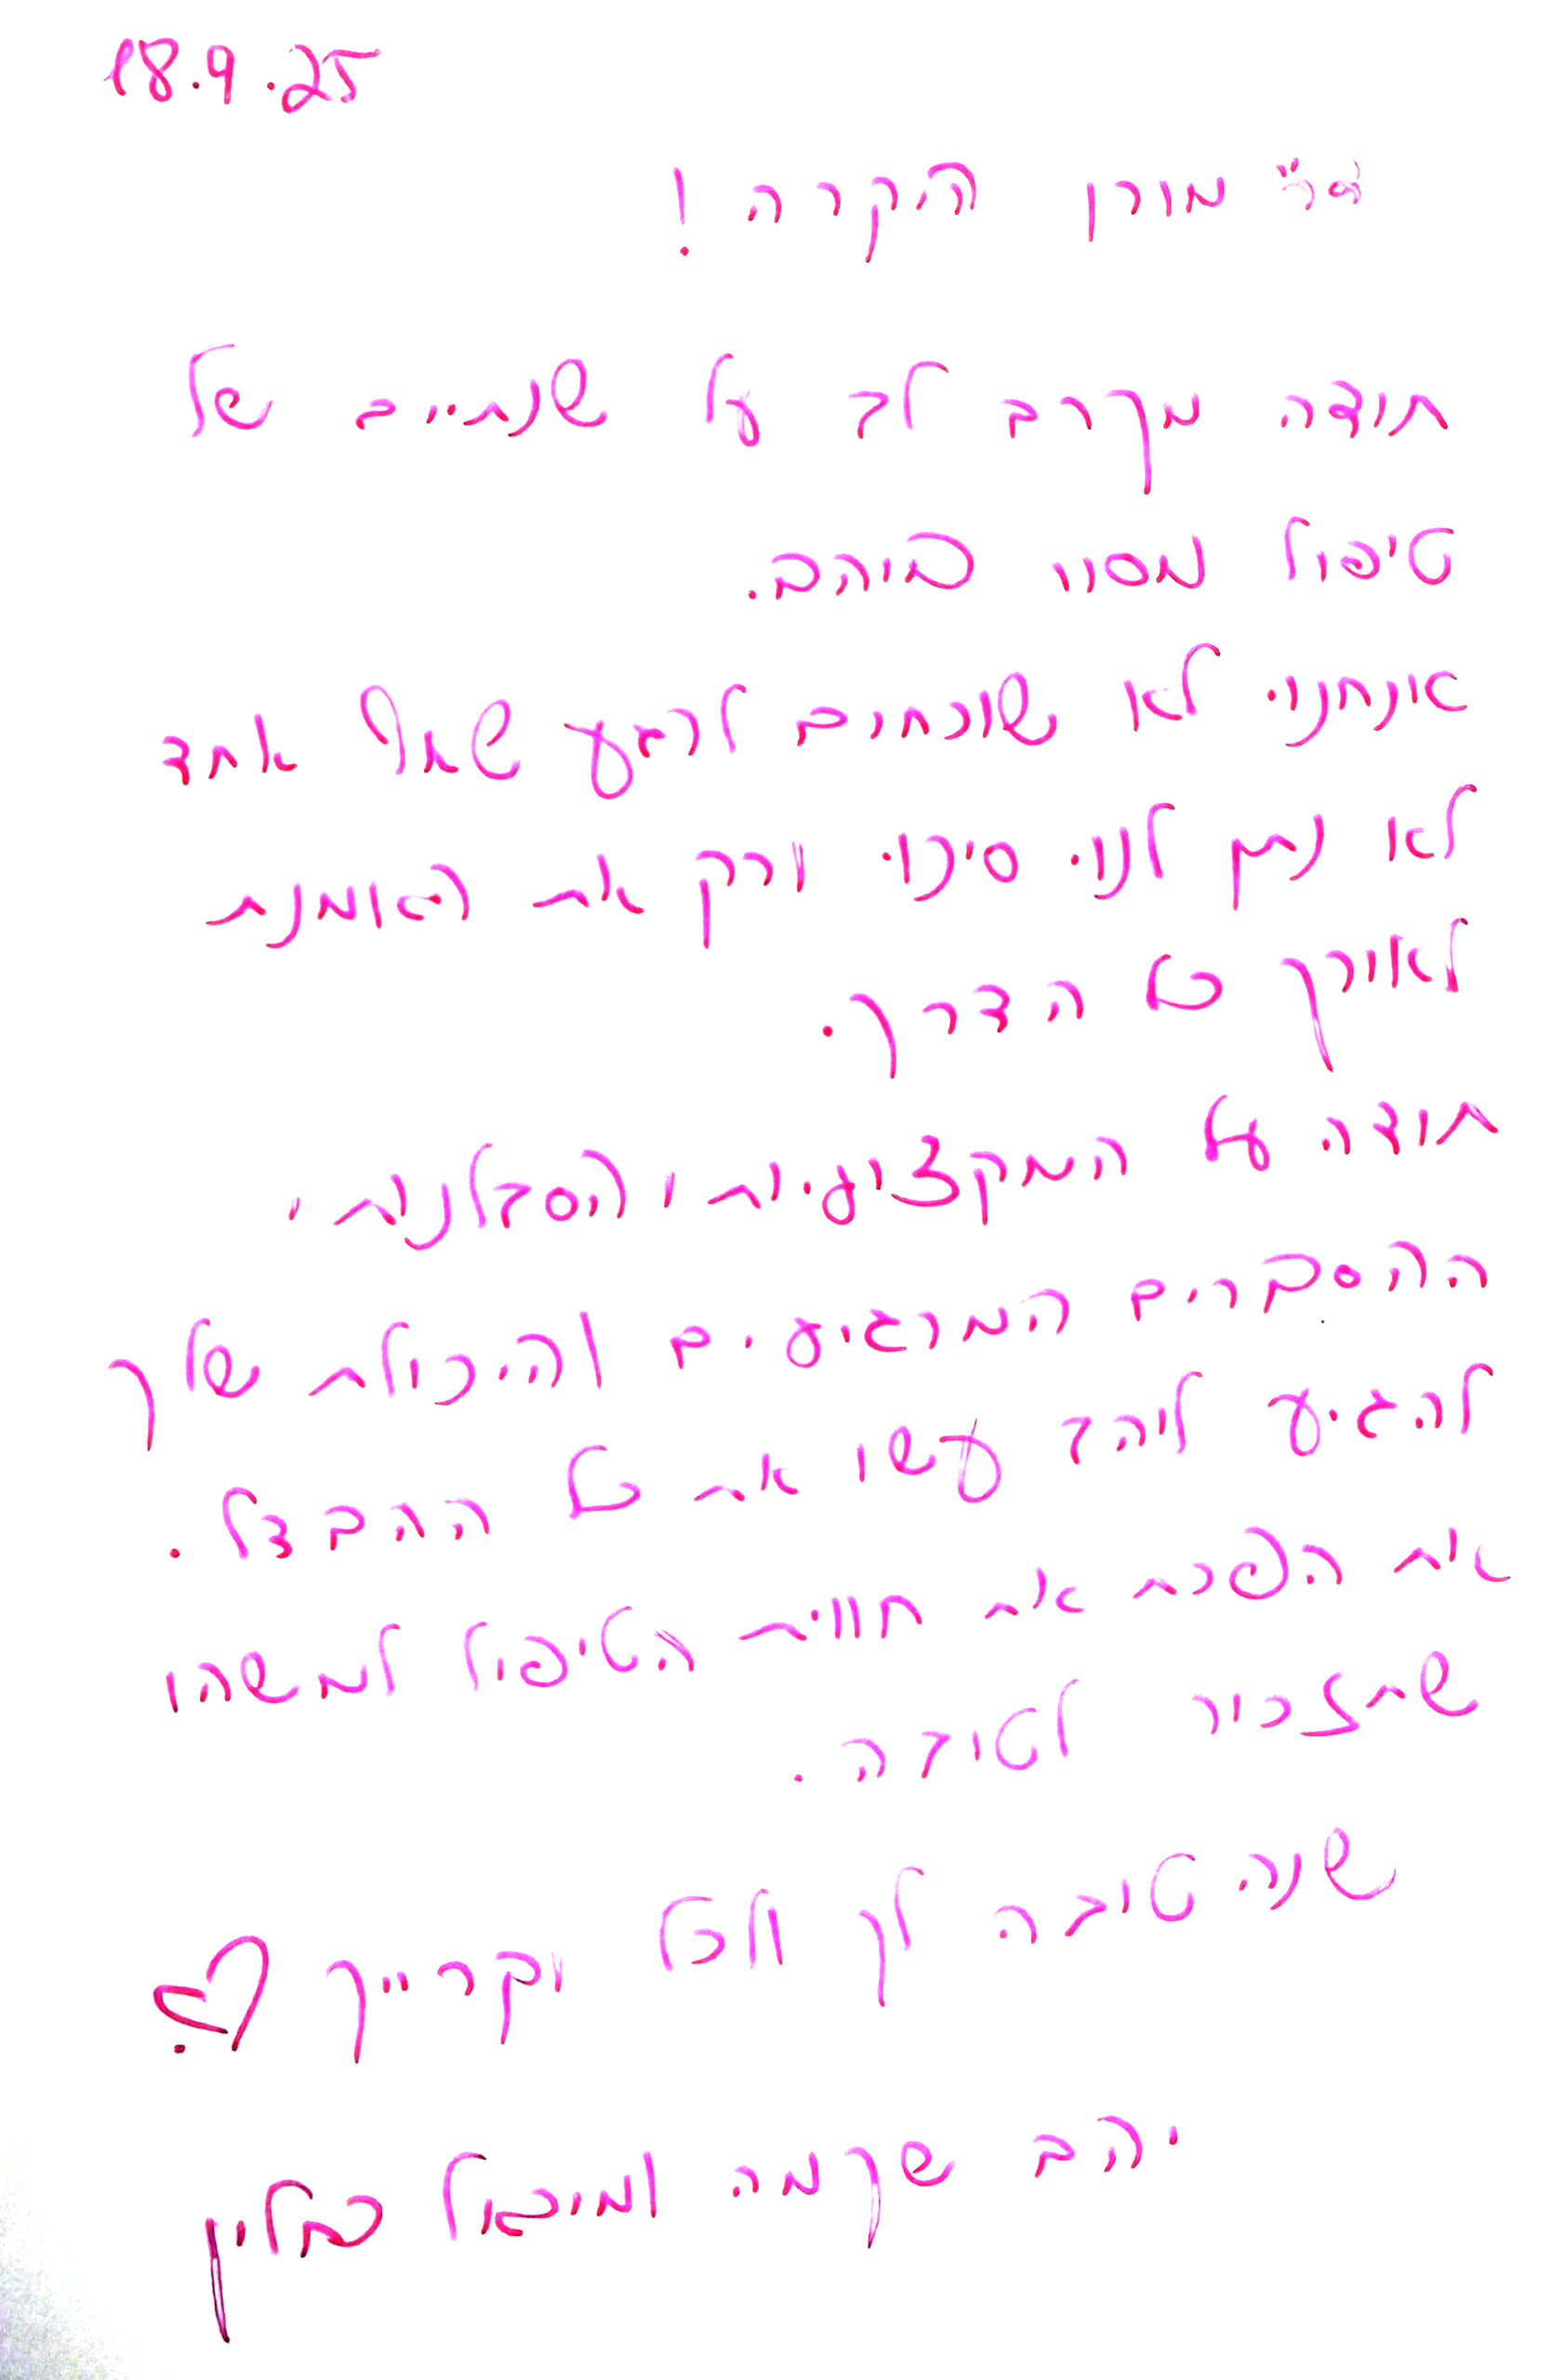 18.9.25
ד"ר מורן היקרה!
תודה מקרב לב על שנתיים של
טיפול מסור ביהב.
אנחנו לא שוכחים לרגע שאף אחד
לא נתן לנו סיכוי ורק את האמנת
לאורך כל הדרך.
תודה על המקצועיות והסבלנות,
ההסברים המרגיעים והיכולת שלך
להגיע ליהב עשו את כל ההבדל.
את הפכת את חוויית הטיפול למשהו
שתזכיר לטובה.
שנה טובה לך ולכל יקרייך ♡.
יהב שקמה ומיכאל